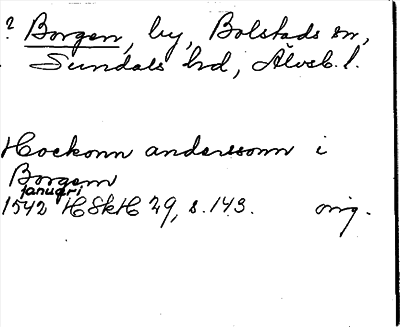 ? Borgen, by, Bolstads sn,
Sundals hd, Älvsb. l.
Hockonn anderssonn i
Borgenn
januari
1542 HSkH 29, s. 143. orig.